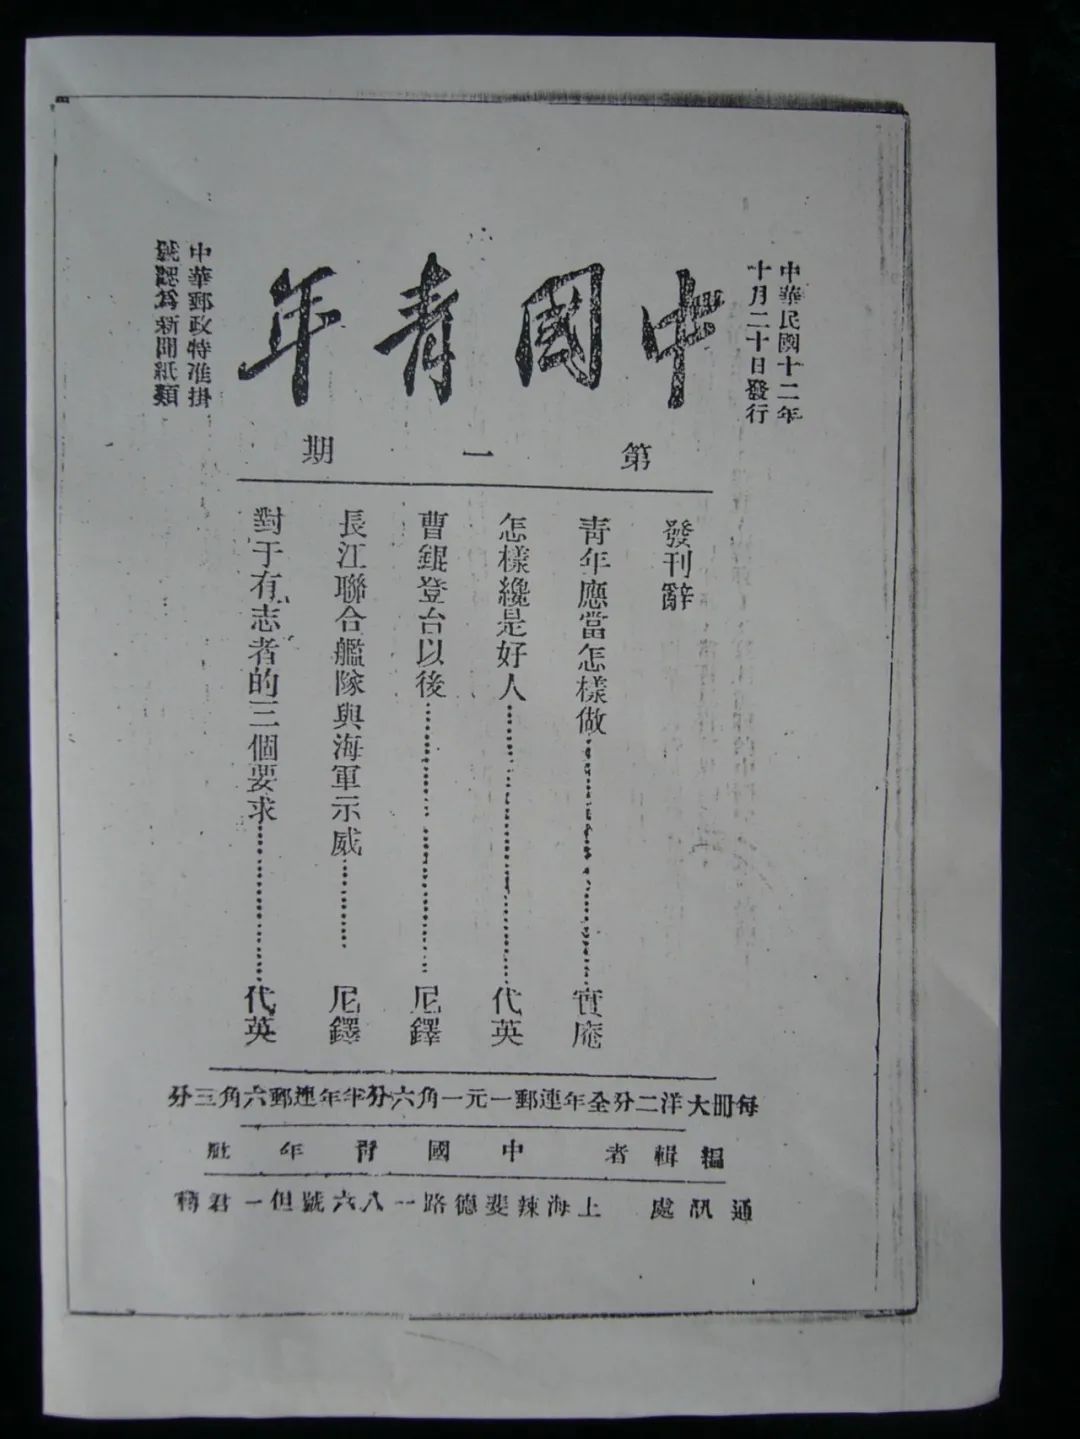 中華民國十二年
十月二十日發行
中國青年
第一期
中華郵政特准掛
號認為新聞紙類
發刊辭
青年應當怎樣做……實庵
怎樣纔是好人……代英
曹錕登台以後……尼鐸
長江聯合艦隊與海軍示威……尼鐸
對于有志者的三個要求……代英
每冊大洋二分全年連郵一元一角六分半年連郵六角三分
編輯者 中國青年社
通訊處 上海辣斐德路一八六號但一君轉